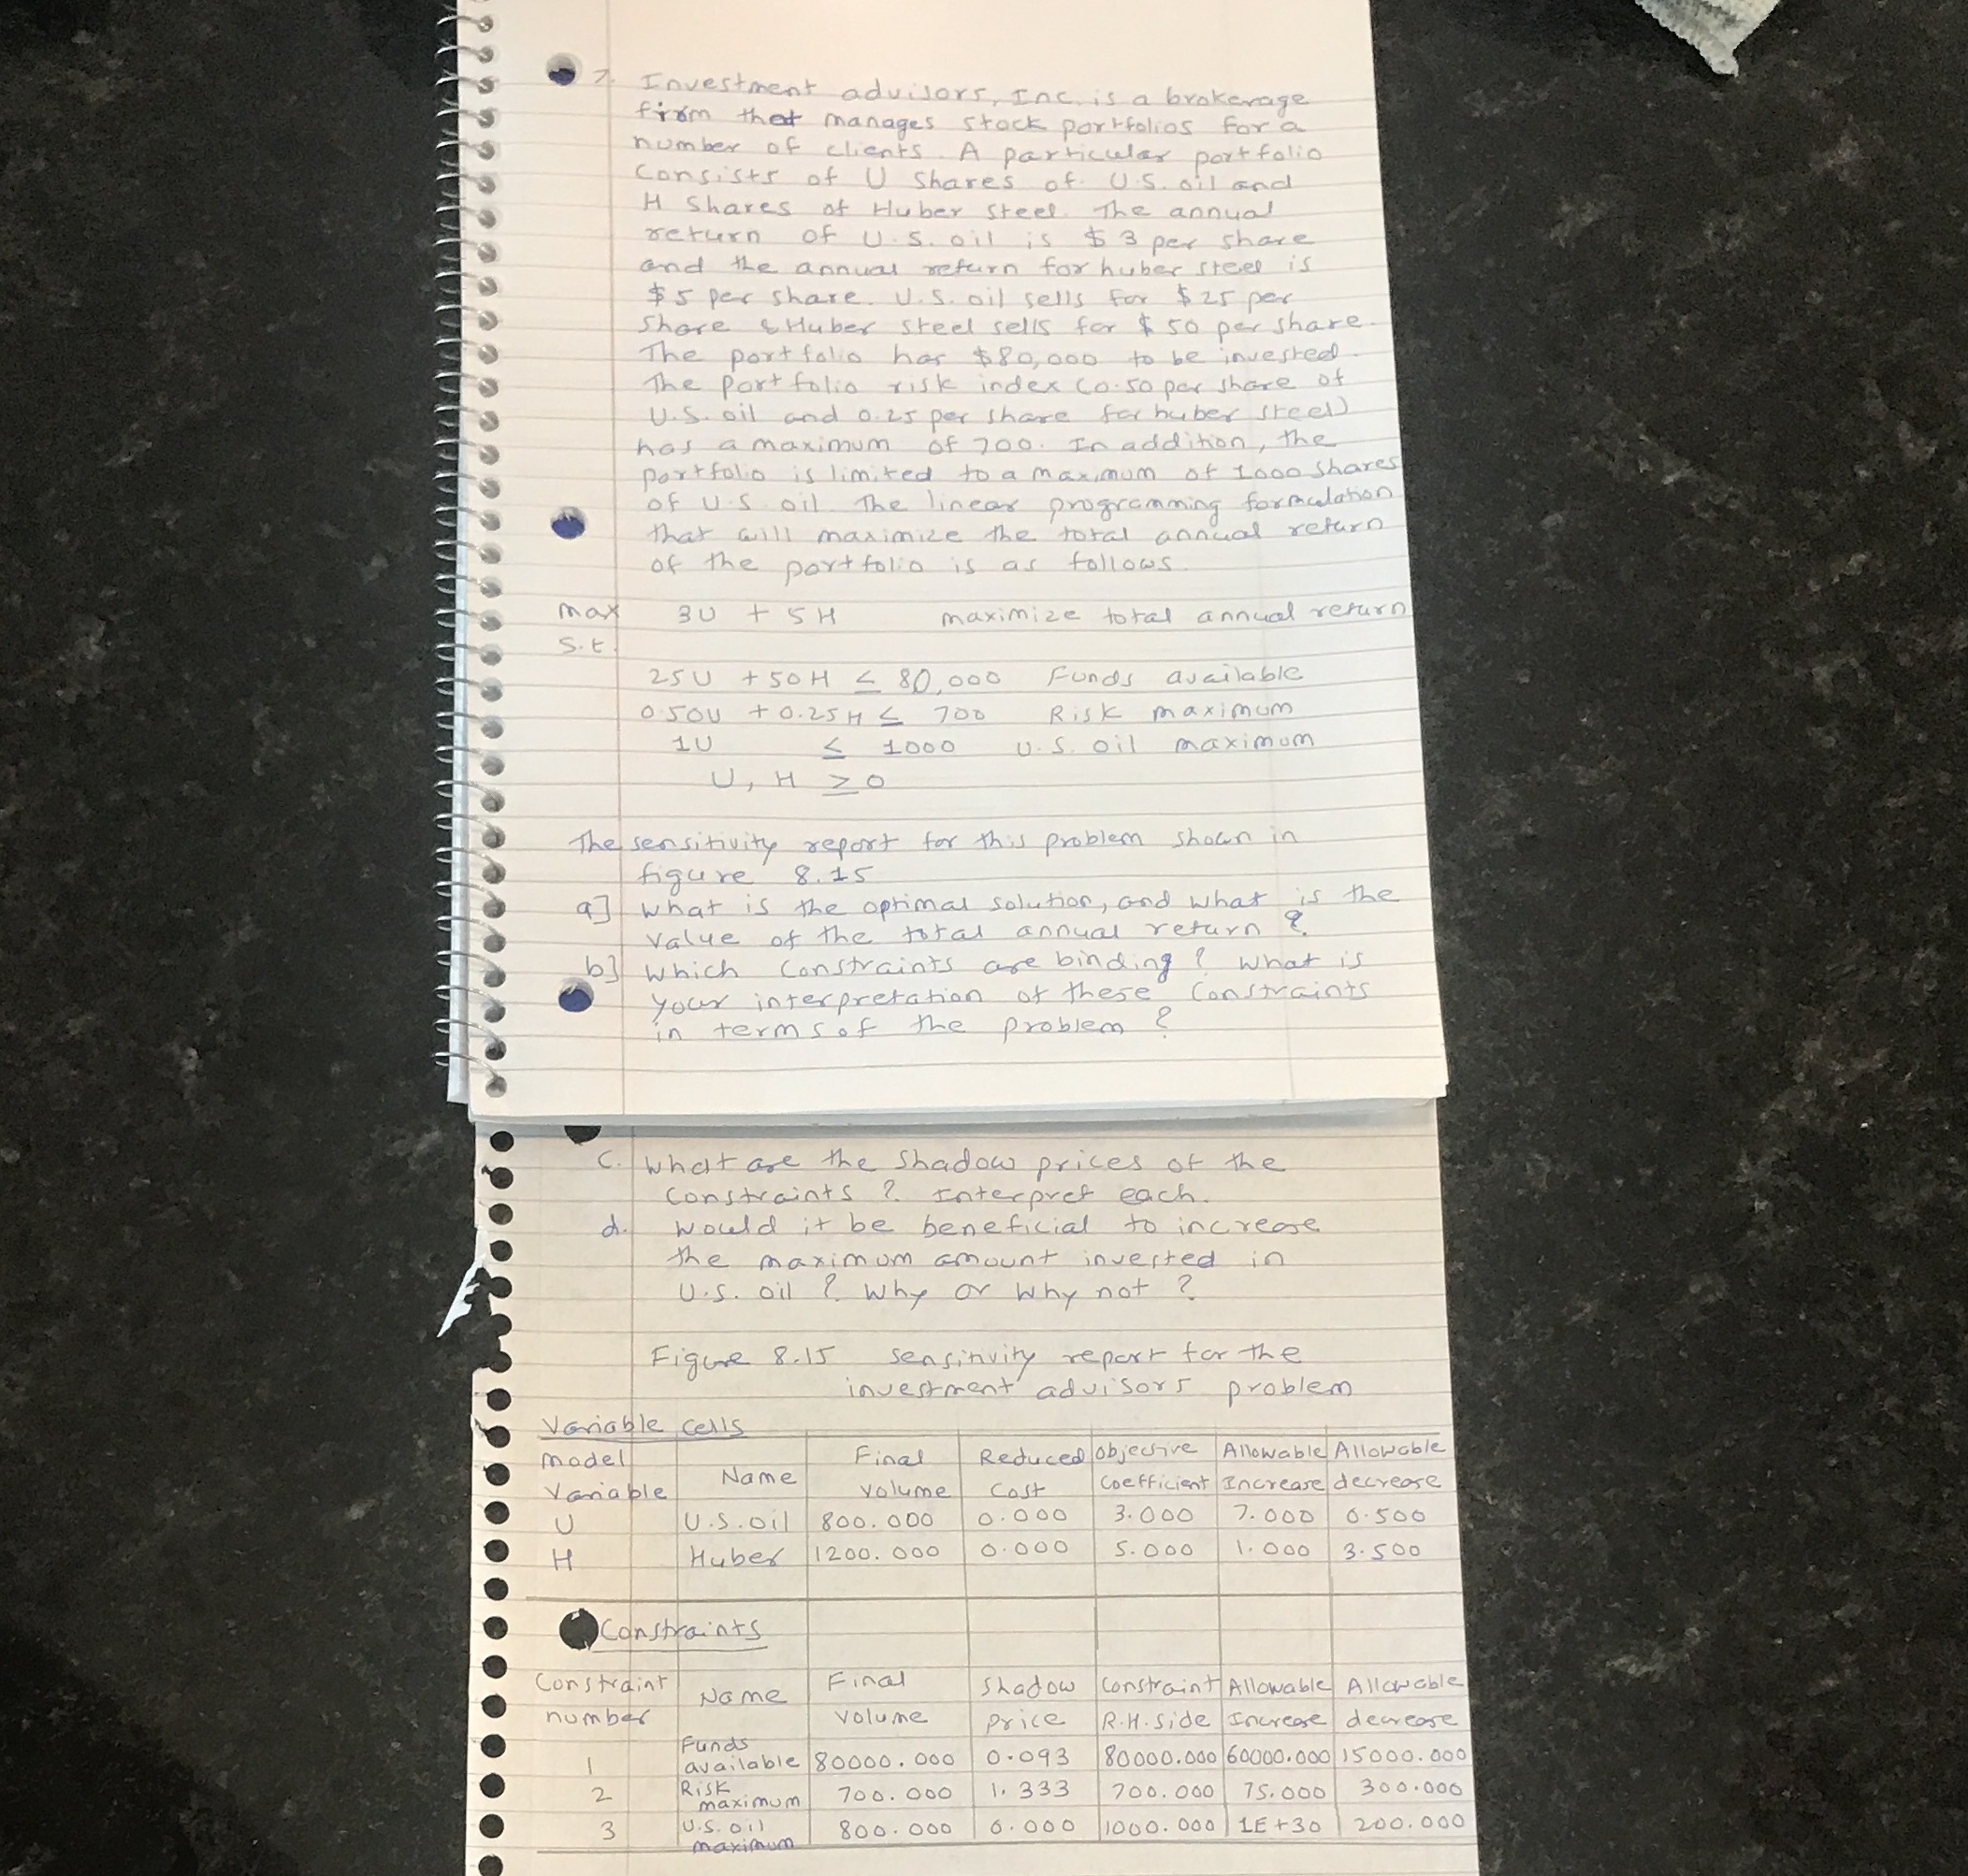 7. Investment advisors, Inc. is a brokerage
firm that manages stock portfolios for a
number of clients. A particular portfolio
consists of U shares of U.S. oil and
H shares of Huber Steel. The annual
return of U.S. oil is $3 per share
and the annual return for huber steel is
$5 per share. U.S. oil sells for $25 per
share & Huber steel sells for $50 per share.
The portfolio has $80,000 to be invested.
The portfolio risk index (0.50 per share of
U.S. oil and 0.25 per share for huber steel)
has a maximum of 700. In addition, the
portfolio is limited to a maximum of 1000 shares
of U.S. oil. The linear programming formulation
that will maximize the total annual return
of the portfolio is as follows.
max 3U + 5H maximize total annual return
S.t.
25U + 50H ≤ 80,000 Funds available
0.50U + 0.25H ≤ 700 Risk maximum
1U ≤ 1000 U.S. oil maximum
U, H ≥ 0
The sensitivity report for this problem shown in
figure 8.15
a] what is the optimal solution, and what is the
value of the total annual return ?
b] which constraints are binding ? What is
your interpretation of these constraints
in terms of the problem ?
c. What are the shadow prices of the
constraints ? Interpret each.
d. Would it be beneficial to increase
the maximum amount invested in
U.S. oil ? Why or why not ?
Figure 8.15 Sensitivity report for the
investment advisors problem
Variable cells
Model Variable Name Final Volume Reduced Cost Objective Coefficient Allowable Increase Allowable decrease
U U.S. oil 800.000 0.000 3.000 7.000 0.500
H Huber 1200.000 0.000 5.000 1.000 3.500
Constraints
Constraint number Name Final Volume Shadow price Constraint R.H. Side Allowable Increase Allowable decrease
1 Funds available 80000.000 0.093 80000.000 60000.000 15000.000
2 Risk maximum 700.000 1.333 700.000 75.000 300.000
3 U.S. oil maximum 800.000 0.000 1000.000 1E+30 200.000